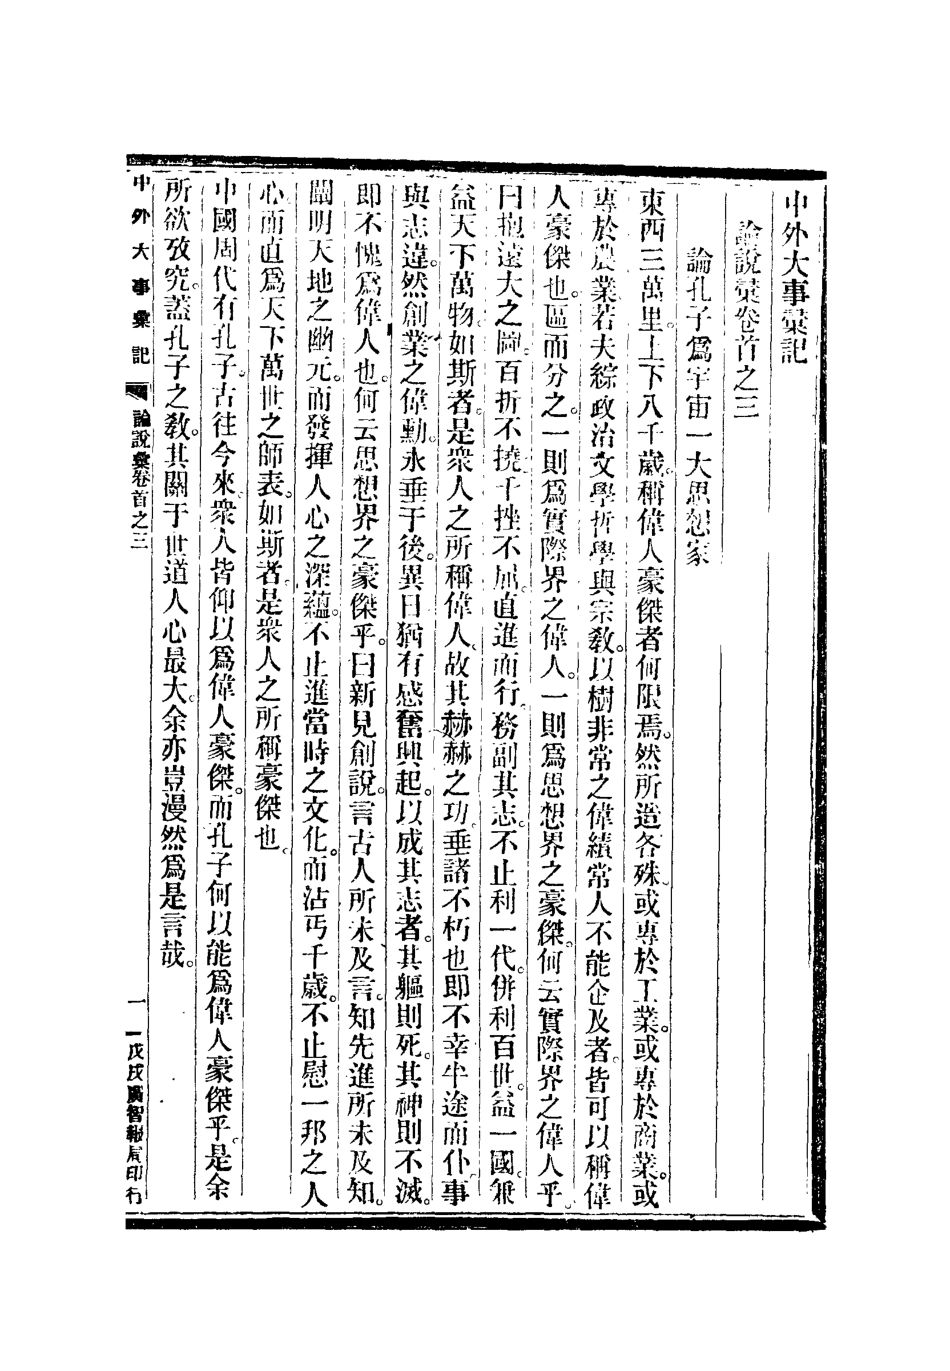 中外大事彙記
論說彙卷首之三
論孔子爲宇宙一大思想家
東西三萬里。上下八千歲。稱偉人豪傑者何限焉。然所造各殊。或專於工業。或專於商業。或
專於農業。若夫綜政治文學哲學與宗敎。以樹非常之偉績。常人不能企及者。皆可以稱偉
人豪傑也。區而分之。一則爲實際界之偉人。一則爲思想界之豪傑。何云實際界之偉人乎。
曰抱遠大之圖。百折不撓。千挫不屈。直進而行。務副其志。不止利一代。併利百世。益一國。兼
益天下萬物。如斯者。是衆人之所稱偉人。故其赫赫之功。垂諸不朽也。即不幸半途而仆。事
與志違。然創業之偉勳。永垂于後。異日猶有感奮興起。以成其志者。其軀則死。其神則不滅。
即不愧爲偉人也。何云思想界之豪傑乎。曰新見創說。言古人所未及言。知先進所未及知。
闡明天地之幽元。而發揮人心之深蘊。不止進當時之文化。而沾丐千歲。不止慰一邦之人
心。而直爲天下萬世之師表。如斯者。是衆人之所稱豪傑也。
中國周代有孔子。古往今來。衆人皆仰以爲偉人豪傑。而孔子何以能爲偉人豪傑乎。是余
所欲攷究。蓋孔子之敎。其關于世道人心最大。余亦豈漫然爲是言哉。
中外大事彙記 論說彙卷首之三 一 戊戌廣智報局印行